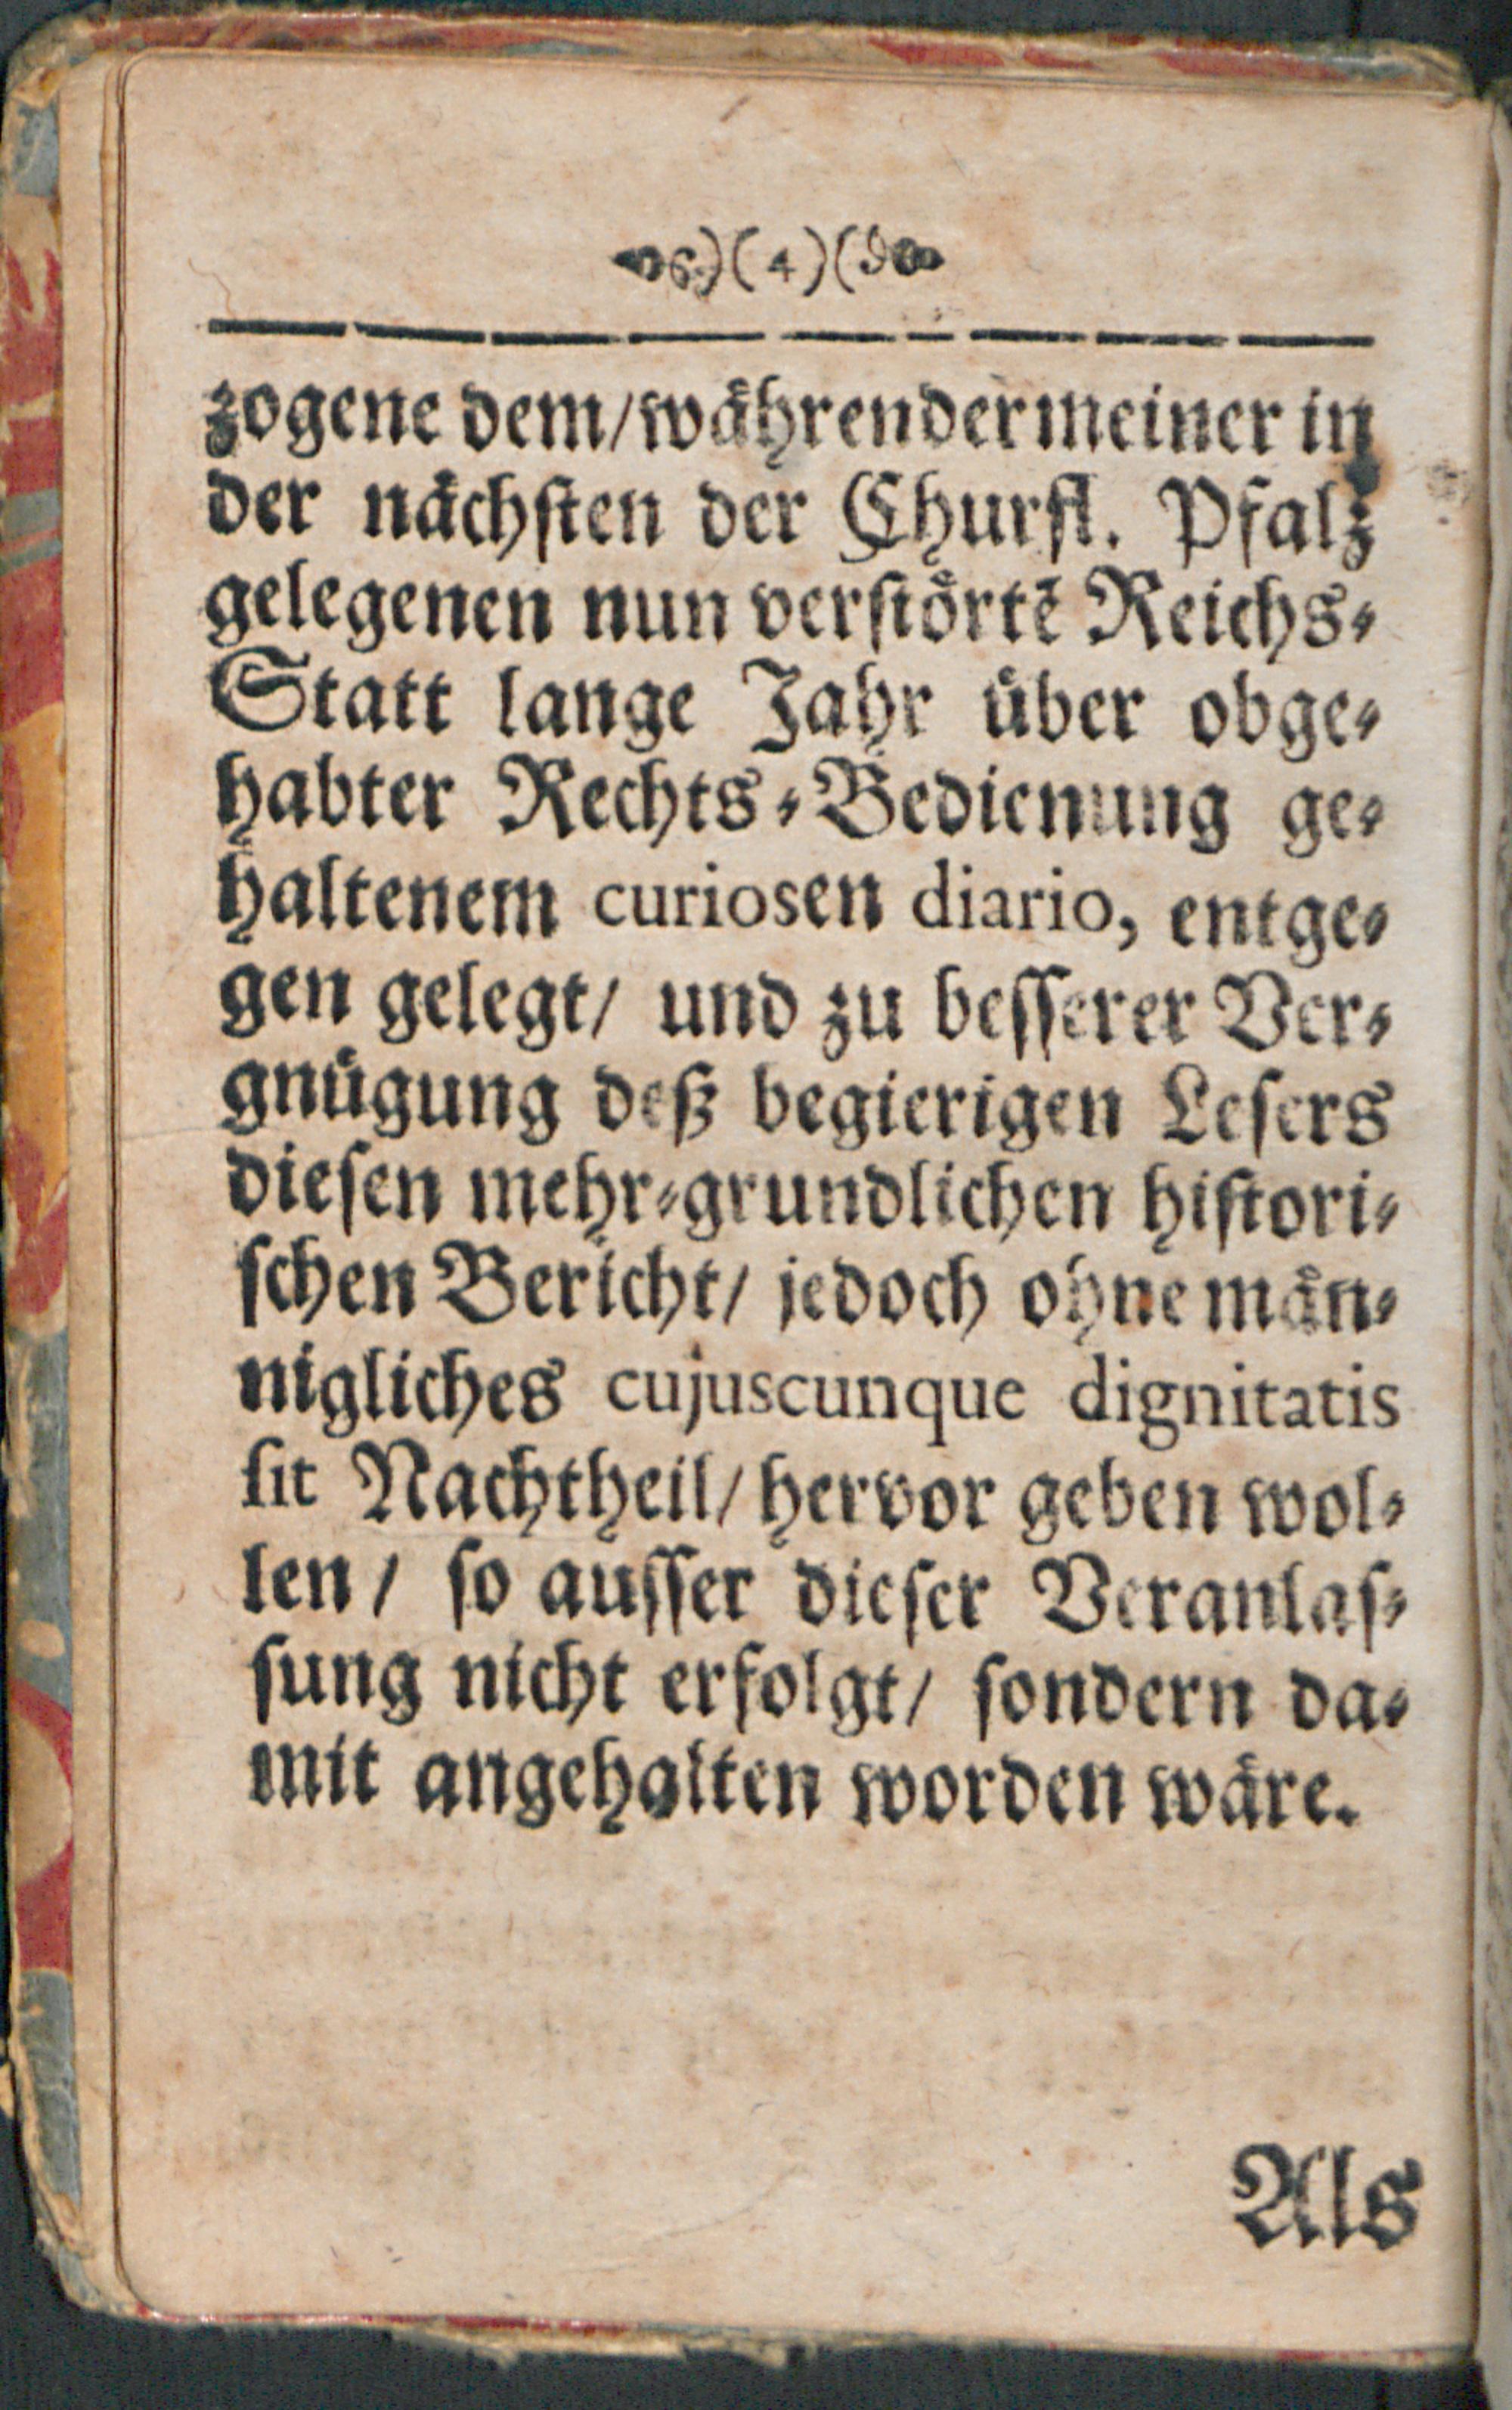 )(4)(
zogene dem/währender meiner in
der nächsten der Churfl. Pfalz
gelegenen nun verstörtẽ Reichs-
Statt lange Jahr über obge-
habter Rechts-Bedienung ge-
haltenem curiosen diario, entge-
gen gelegt/ und zu besserer Ver-
gnügung deß begierigen Lesers
diesen mehr-grundlichen histori-
schen Bericht/ jedoch ohne män-
nigliches cujuscunque dignitatis
sit Nachtheil/ hervor geben wol-
len/ so ausser dieser Veranlas-
sung nicht erfolgt/ sondern da-
mit angehalten worden wäre.
Als